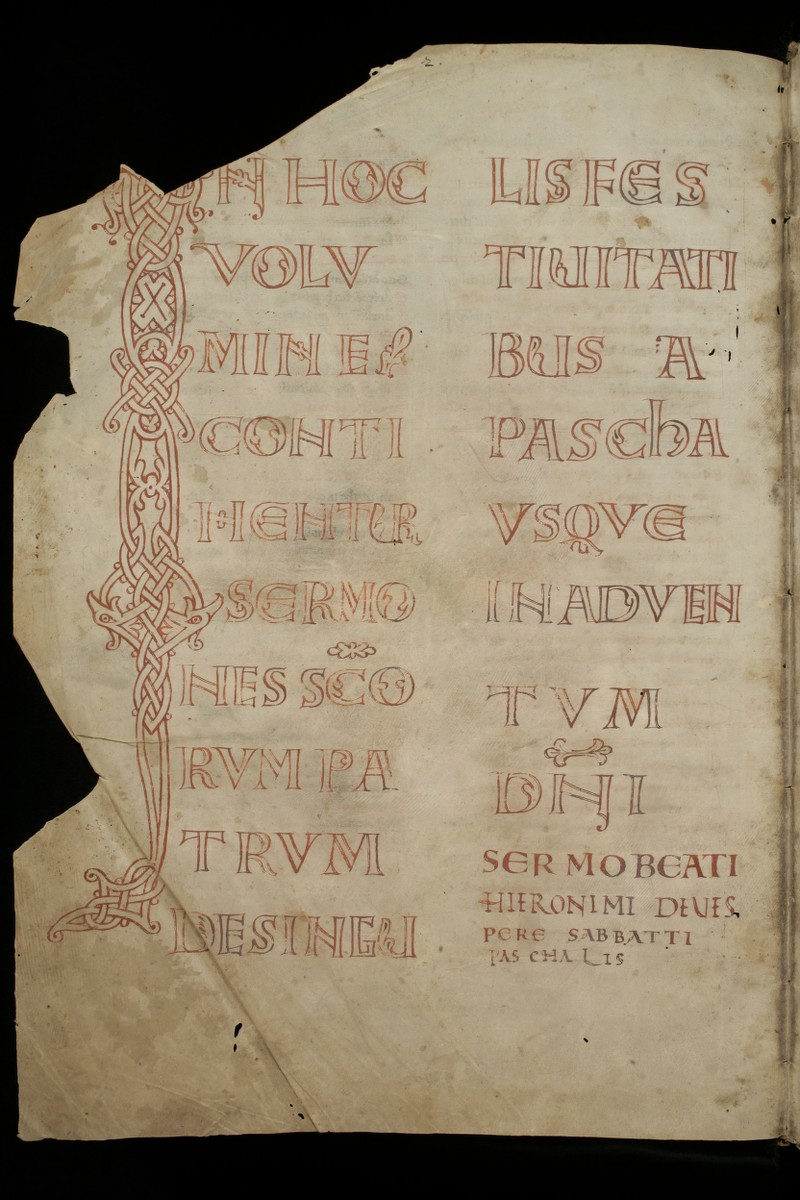 IN HOC
VOLV
MINE
CONTI
NENTUR
SERMO
NES SCO
RVM PA
TRVM
DE SINGU
LIS FES
TIUITATI
BUS A
PASChA
VSQVE
IN ADVEN
TVM
DNI
SERMO BEATI
HIERONIMI DE UES
PERE SABBATTI
PASCHALIS